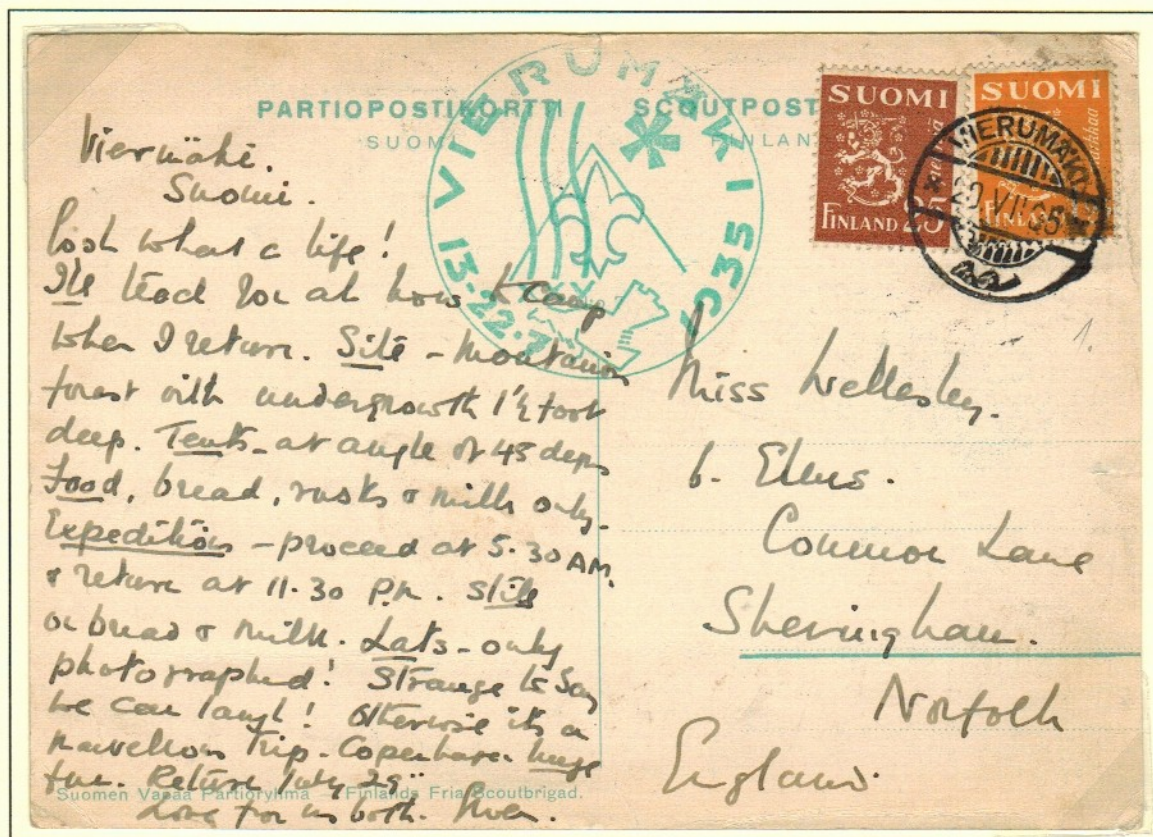 PARTIOPOSTIKORTTI SCOUTPOST
SUOMI FINLAN
VIERUMÄKI 1935
13-22.7
SUOMI
FINLAND 25
SUOMI
markkaa
FINLAND
VIERUMÄKI
20.VII.35
Viermäki.
Suomi.
Gosh what a life!
I'll teach you all how to camp
when I return. Site - Mountainous
forest with undergrowth 1½ foot
deep. Tents - at angle of 45 degs
Food, bread, rusks & milk only -
Expeditions - proceed at 5.30 AM.
& return at 11.30 P.M. Still
on bread & milk. Lats - only
photographed! Strange to say
we can laugh! Otherwise its a
marvellous trip - Copenhagen huge
fun. Return July 29"
Love from us both.
Miss Wellesley.
6. Elms.
Common Lane
Sheringham.
Norfolk
England.
1.
Suomen Vapaa Partioryhmä - Finlands Fria Scoutbrigad.